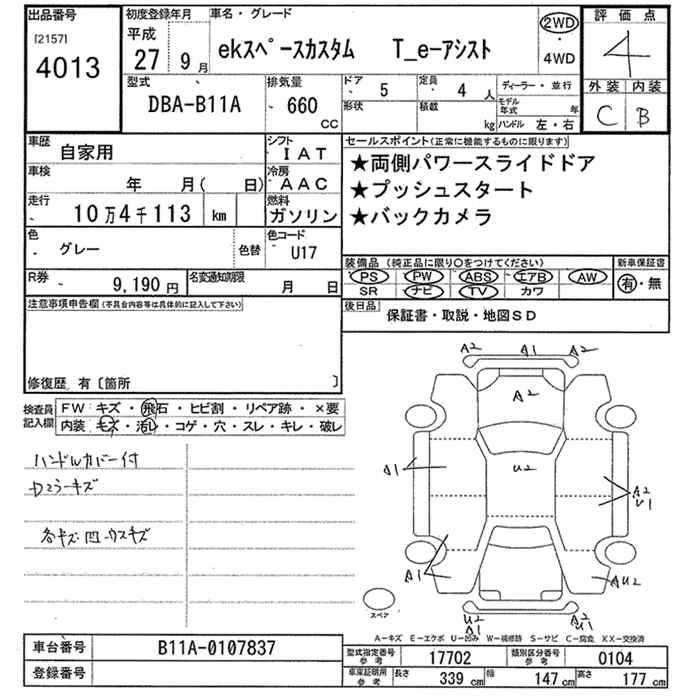 出品番号
[2157]
4013
初度登録年月
平成
27 9月
車名・グレード
ekスペースカスタム T_e-アシスト
2WD
・
4WD
評価点
4
外装 内装
C B
型式
DBA-B11A
排気量
660
CC
ドア
5
定員
4 人
形状
積載
kg
ディーラー・並行
モデル年式 年
ハンドル 左・右
車歴
自家用
シフト
IAT
車検
年 月( 日)
冷房
AAC
走行
10万4千113 km
燃料
ガソリン
色
グレー
色替
色コード
U17
R券
9,190 円
名変通知期限
月 日
セールスポイント(正常に機能するものに限ります)
★両側パワースライドドア
★プッシュスタート
★バックカメラ
装備品 (純正品に限り○をつけてください)
PS PW ABS エアB AW
SR ナビ TV カワ
新車保証書
有・無
後日品
保証書・取説・地図SD
注意事項申告欄(不具合内容等は具体的に記入して下さい)
修復歴 有〔箇所 〕
検査員記入欄
FW キズ・飛石・ヒビ割・リペア跡・×要
内装 キズ・汚レ・コゲ・穴・スレ・キレ・破レ
ハンドルカバー付
Dミラーキズ
各キズ凹ウスキズ
A2 A1 A2
A2
U2
A1
A2
U1
A1
AU2
U2
A1
スペア
A-キズ E-エクボ U-凹み W-補修跡 S-サビ C-腐食 XX-交換済
車台番号
B11A-0107837
登録番号
型式指定番号 参考
17702
類別区分番号 参考
0104
車庫証明用 参考
長さ 339 cm
幅 147 cm
高さ 177 cm